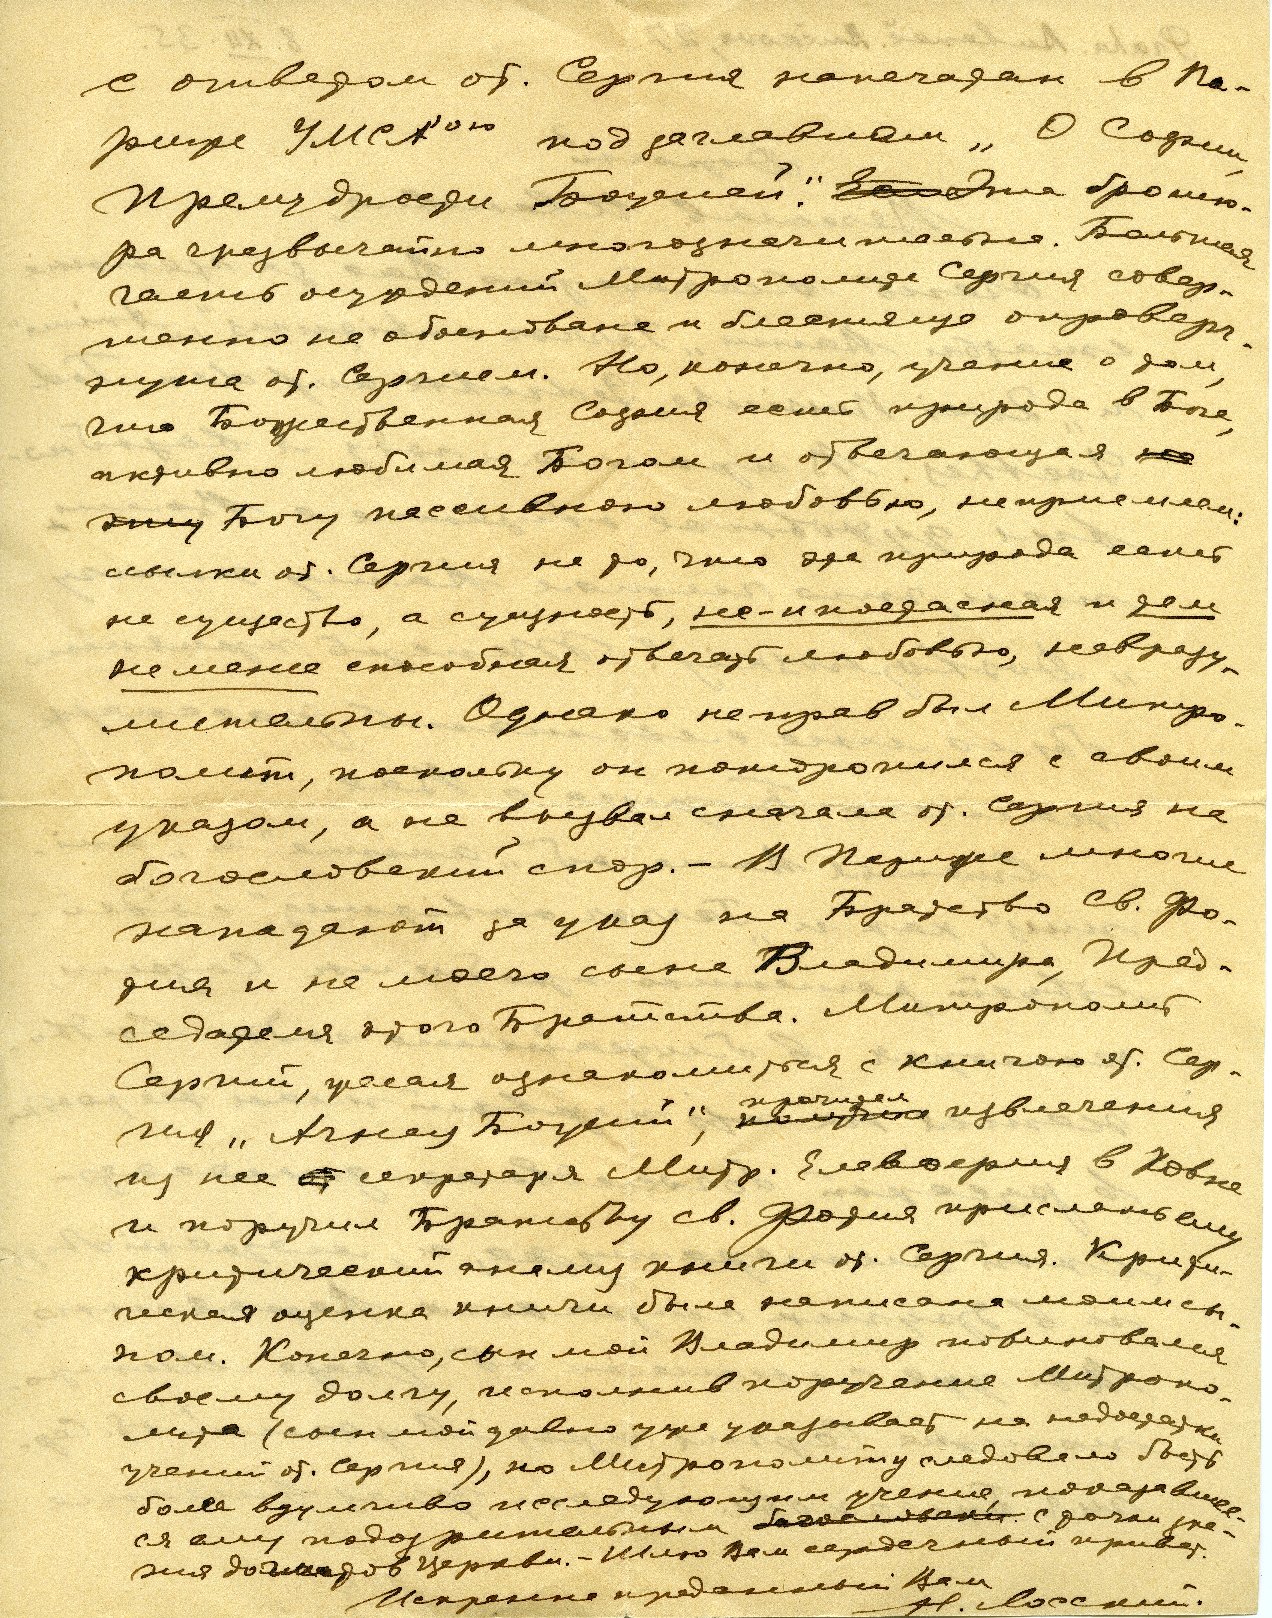 с ответом от. Сергия напечатан в Па-
риже YMCA'ою под заглавием „О Софии,
Премудрости Божией". Эта брошю-
ра чрезвычайно многозначительна. Большая
часть осуждений Митрополита Сергия совер-
шенно не обоснована и блестяще опроверг-
нута от. Сергием. Но, конечно, учение о том,
что Божественная София есть природа в Боге,
активно любимая Богом и отвечающая на
эту Богу пассивною любовью, неприемлем:
ссылки от. Сергия на то, что эта природа есть
не существо, а сущность, не-ипостасная и тем
не менее способная отвечать любовью, невразу-
мительны. Однако неправ был Митро-
полит, поскольку он поторопился с своим
указом, а не вызвал сначала от. Сергия на
богословский спор. – В Париже многие
нападают за указ на Братство Св. Фо-
тия и на моего сына Владимира, Пред-
седателя этого Братства. Митрополит
Сергий, желая ознакомиться с книгою от. Сер-
гия „Агнец Божий", прочитал извлечения
из нее секретаря Митр. Елевферия в Ковне
и поручил Братству св. Фотия прислать ему
критический анализ книги от. Сергия. Крити-
ческая оценка книги была написана моим сы-
ном. Конечно, сын мой Владимир повиновался
своему долгу, исполнив поручение Митропо-
лита (сын мой давно уже указывает на недостатки
учений от. Сергия), но Митрополиту следовало быть
более вдумчиво исследующим учение, показавшее-
ся ему подозрительным с точки зре-
ния догматов Церкви. – Шлю Вам сердечный привет.
Искренне преданный Вам
Н. Лосский.